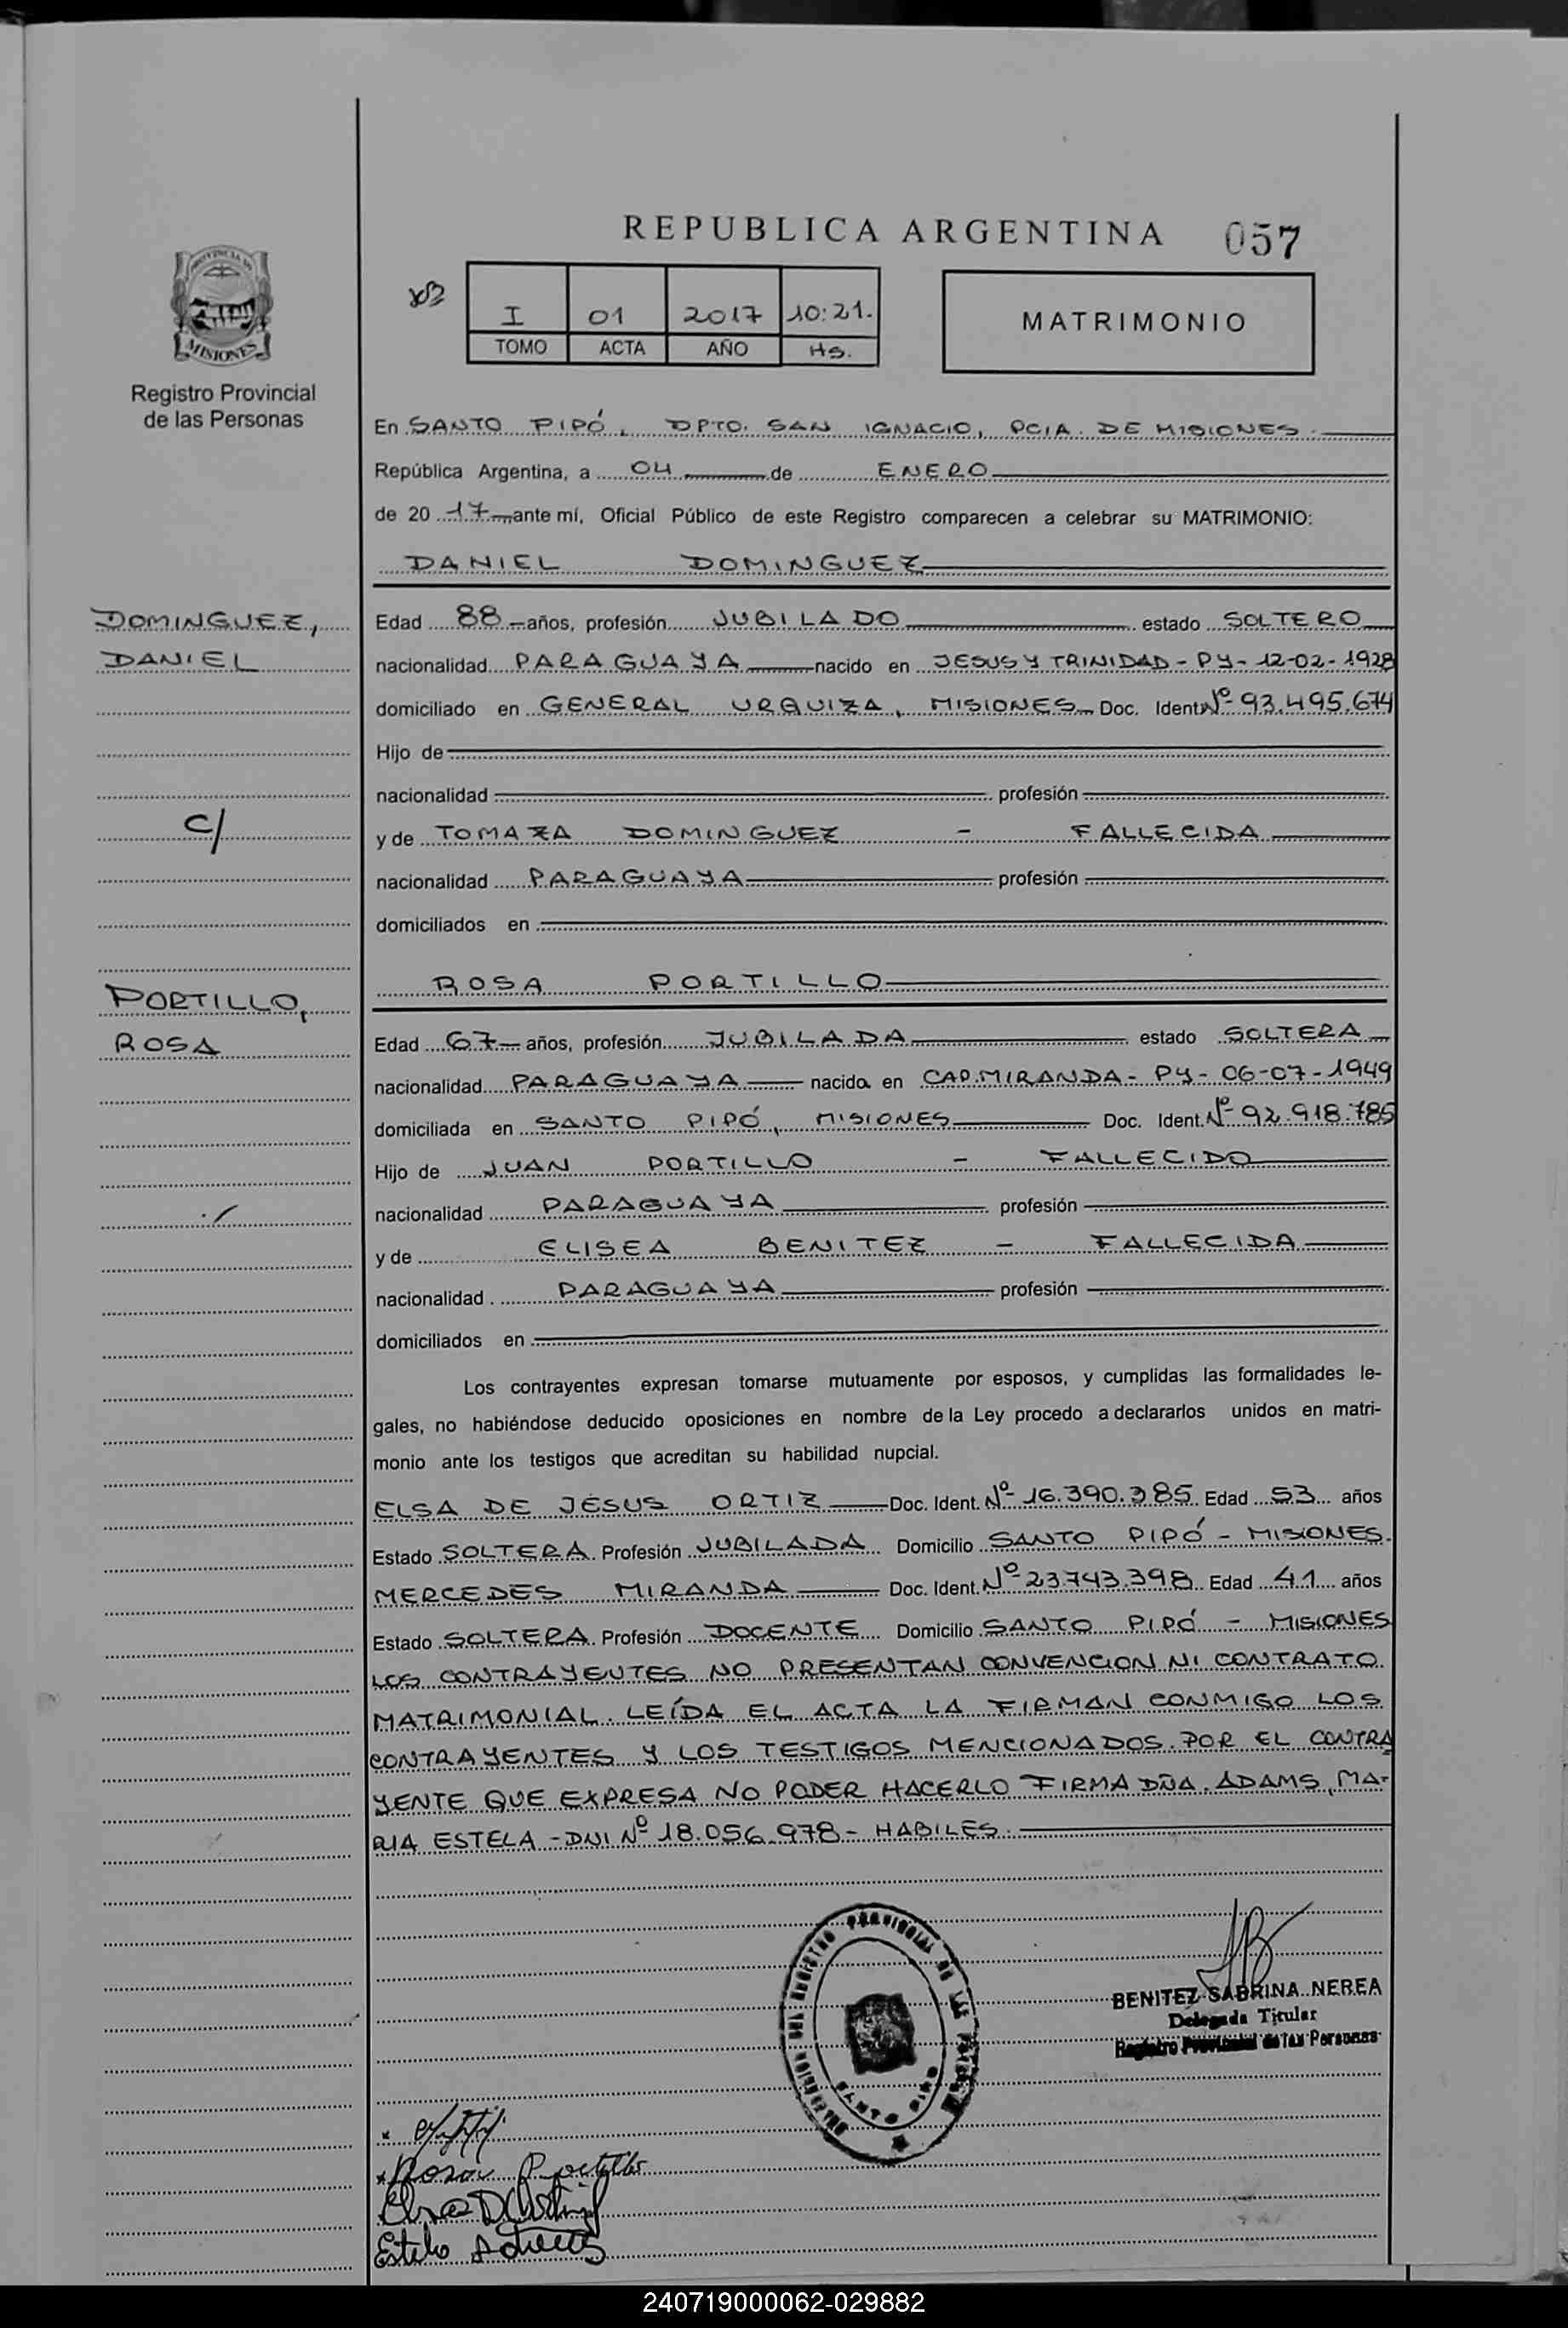 REPUBLICA ARGENTINA 057
I 01 2017 10:21.
TOMO ACTA AÑO Hs.
MATRIMONIO
MISIONES
Registro Provincial
de las Personas
En SANTO PIPÓ, DPTO. SAN IGNACIO, PCIA. DE MISIONES.
República Argentina, a 04 de ENERO
de 20 17 ante mí, Oficial Público de este Registro comparecen a celebrar su MATRIMONIO:
DANIEL DOMINGUEZ
DOMINGUEZ,
DANIEL
C/
PORTILLO,
ROSA
Edad 88 años, profesión JUBILADO estado SOLTERO
nacionalidad PARAGUAYA nacido en JESUS Y TRINIDAD - PY - 12-02-1928
domiciliado en GENERAL URQUIZA, MISIONES Doc. Ident. Nº 93.495.674
Hijo de
nacionalidad profesión
y de TOMAZA DOMINGUEZ - FALLECIDA
nacionalidad PARAGUAYA profesión
domiciliados en
ROSA PORTILLO
Edad 67 años, profesión JUBILADA estado SOLTERA
nacionalidad PARAGUAYA nacida en CAP. MIRANDA - PY - 06-07-1949
domiciliada en SANTO PIPÓ, MISIONES Doc. Ident. Nº 92.918.785
Hijo de JUAN PORTILLO - FALLECIDO
nacionalidad PARAGUAYA profesión
y de ELISEA BENITEZ - FALLECIDA
nacionalidad PARAGUAYA profesión
domiciliados en
Los contrayentes expresan tomarse mutuamente por esposos, y cumplidas las formalidades le-
gales, no habiéndose deducido oposiciones en nombre de la Ley procedo a declararlos unidos en matri-
monio ante los testigos que acreditan su habilidad nupcial.
ELSA DE JESUS ORTIZ Doc. Ident. Nº 16.390.385 Edad 53 años
Estado SOLTERA Profesión JUBILADA Domicilio SANTO PIPÓ - MISIONES.
MERCEDES MIRANDA Doc. Ident. Nº 23.743.398 Edad 41 años
Estado SOLTERA Profesión DOCENTE Domicilio SANTO PIPÓ - MISIONES
LOS CONTRAYENTES NO PRESENTAN CONVENCION NI CONTRATO
MATRIMONIAL. LEÍDA EL ACTA LA FIRMAN CONMIGO LOS
CONTRAYENTES Y LOS TESTIGOS MENCIONADOS. POR EL CONTRA
YENTE QUE EXPRESA NO PODER HACERLO FIRMA DÑA. ADAMS, MA-
RIA ESTELA - DNI Nº 18.056.978 - HABILES.
BENITEZ SABRINA NEREA
Delegada Titular
Registro Provincial de las Personas
SANTO PIPO
Rosa Portillo
240719000062-029882